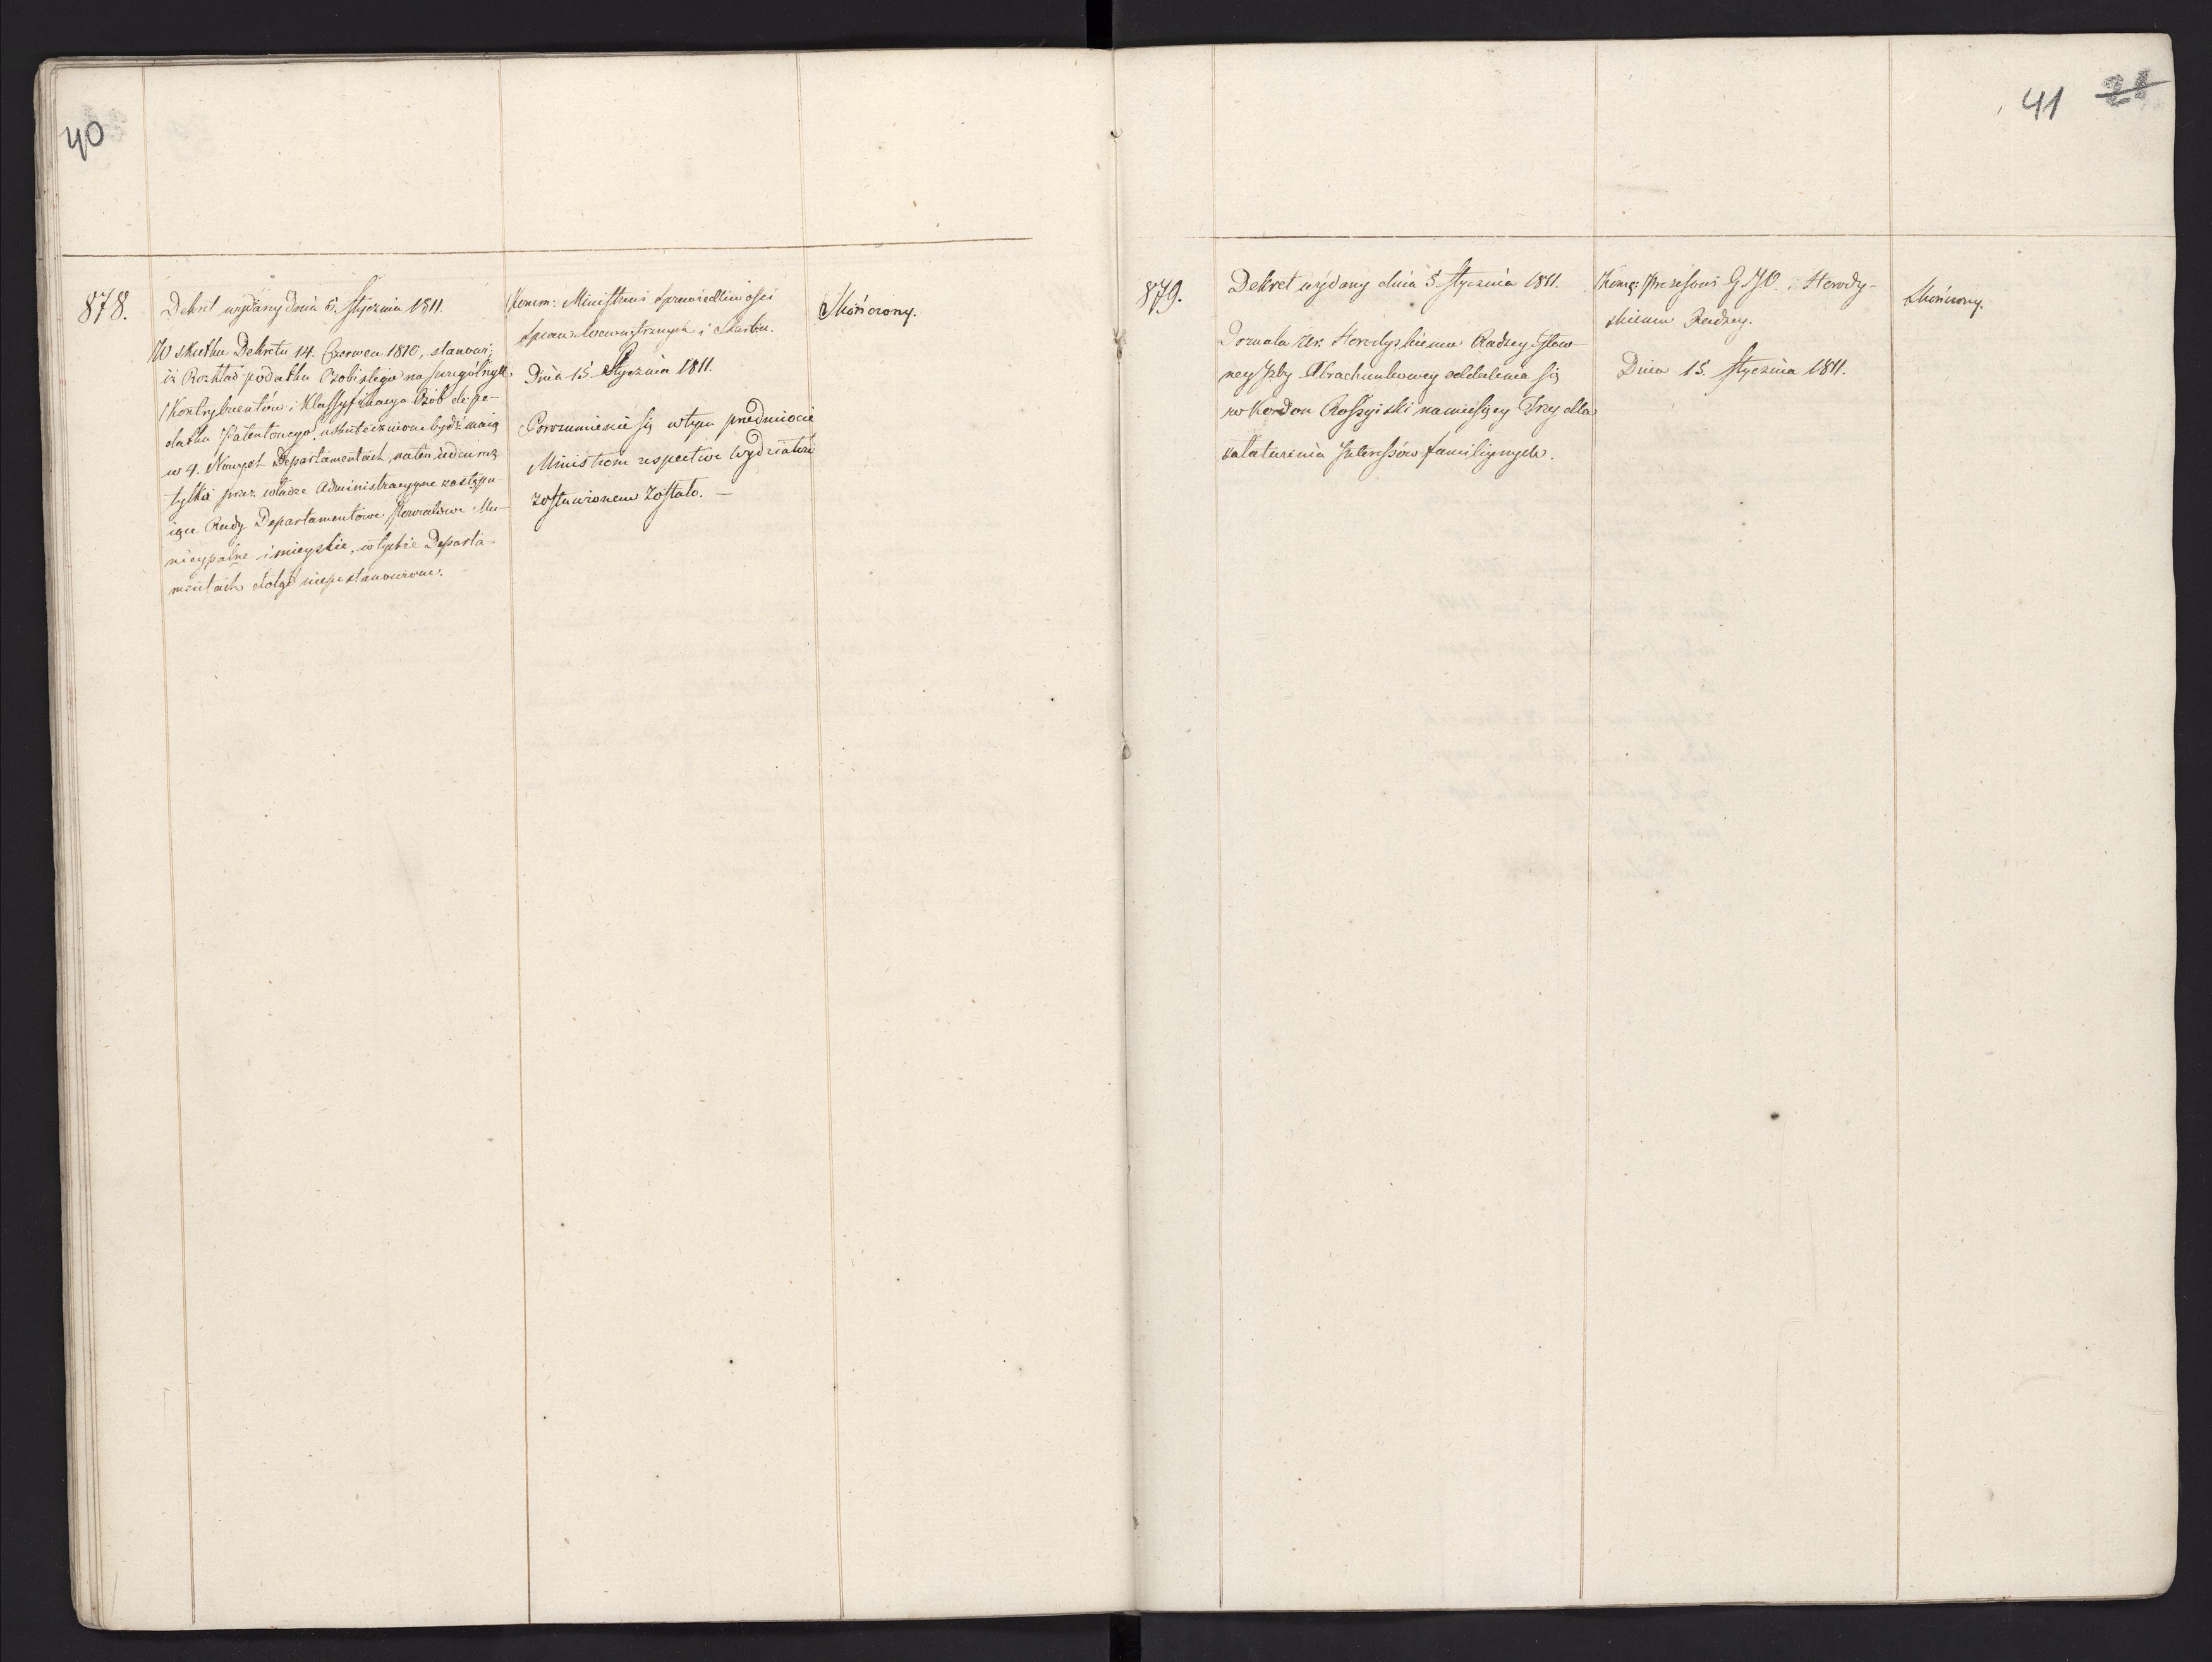 40
878.
Dekret wydany dnia 5. Stycznia 1811.
W skutku Dekretu 14. Czerwca 1810, stanowi;
iż Rozkład podatku Osobistego na szczególnych
Kontrybuentów i Klassyfikacya Osób do po-
datku Patentowego, uskutecznione bydź maią
w 4. Nowych Departamentach, na ten ieden raz
tylko przez władze Administracyyne zastępu-
iące Rady Departamentowe, Powiatowe Mu-
nicypalne i mieyskie, w tychże Departa-
mentach dotąd nieustanowione.
Komm: Ministrowi Sprawiedliwości
Spraw Wewnętrznych i Skarbu.
Dnia 15. Stycznia 1811.
Porozumienie się w tym przedmiocie
Ministrom respective Wydziałów
zostawionem zostało. —
Skończony.
41 21
879.
Dekret wydany dnia 5 Stycznia 1811.
Dozwala Ur. Horodyskiemu Radzcy Głów-
ney Izby Obrachunkowey oddalenia się
w Kordon Rossyiski na miesięcy Trzy dla
załatwienia Interessów familiynych.
Komg: Prezesowi G. I. O. i Horody-
skiemu Radzcy.
Dnia 15. Stycznia 1811.
Skończony.